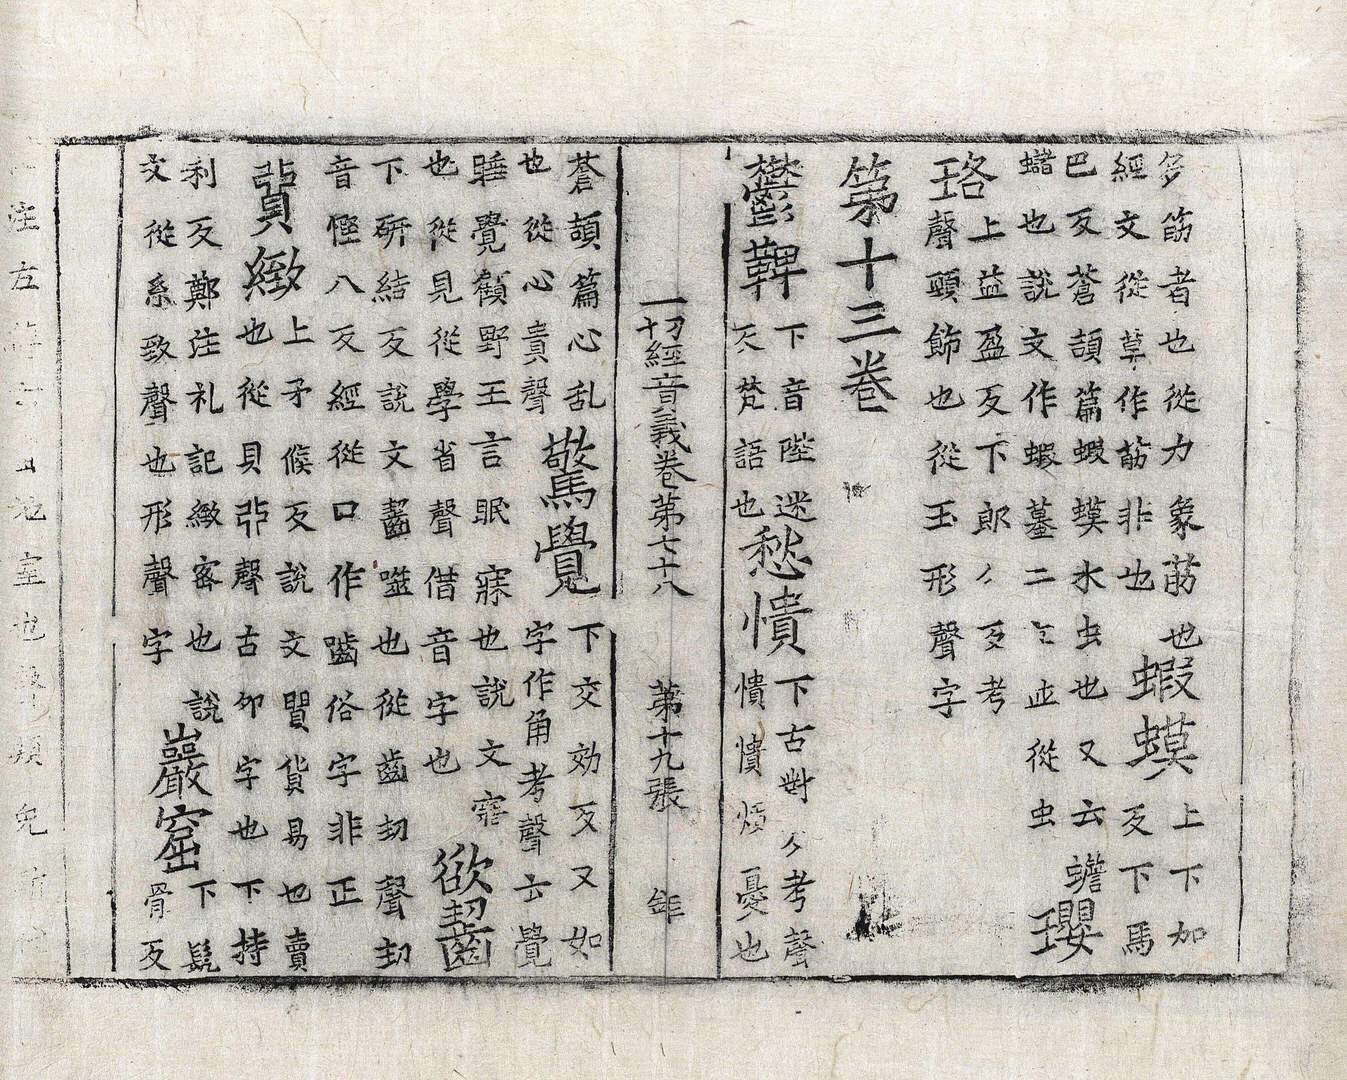 多筋者也從力象莇也
經文從草作莇非也
蝦蟆
上下加
反下馬
巴反蒼頡篇蝦蟆水虫也又云蟾
蠩也說文作蝦蟇二並從虫
瓔
珞
上益盈反下郎反考
聲頸飾也從玉形聲字
第十三卷
鬱鞞
下音陛迷
反梵語也
愁憒
下古對反考聲
憒憒煩憂也
一切經音義卷第七十八 第十九張
蒼頡篇心乱
也從心責聲
驚覺
下交効反又如
字作角考聲云覺
睡覺顧野王言眠寐也說文寤
也從見從學省聲借音字也
欲齧
下研結反說文齧噬也從齒㓞聲㓞
音慳八反經從口作嚙俗字非正
貿緻
上矛候反說文貿貨易也賣
也從貝丣聲古卯字也下持
利反鄭注礼記緻密也說
文從糸致聲也形聲字
巖窟
下髡
骨反